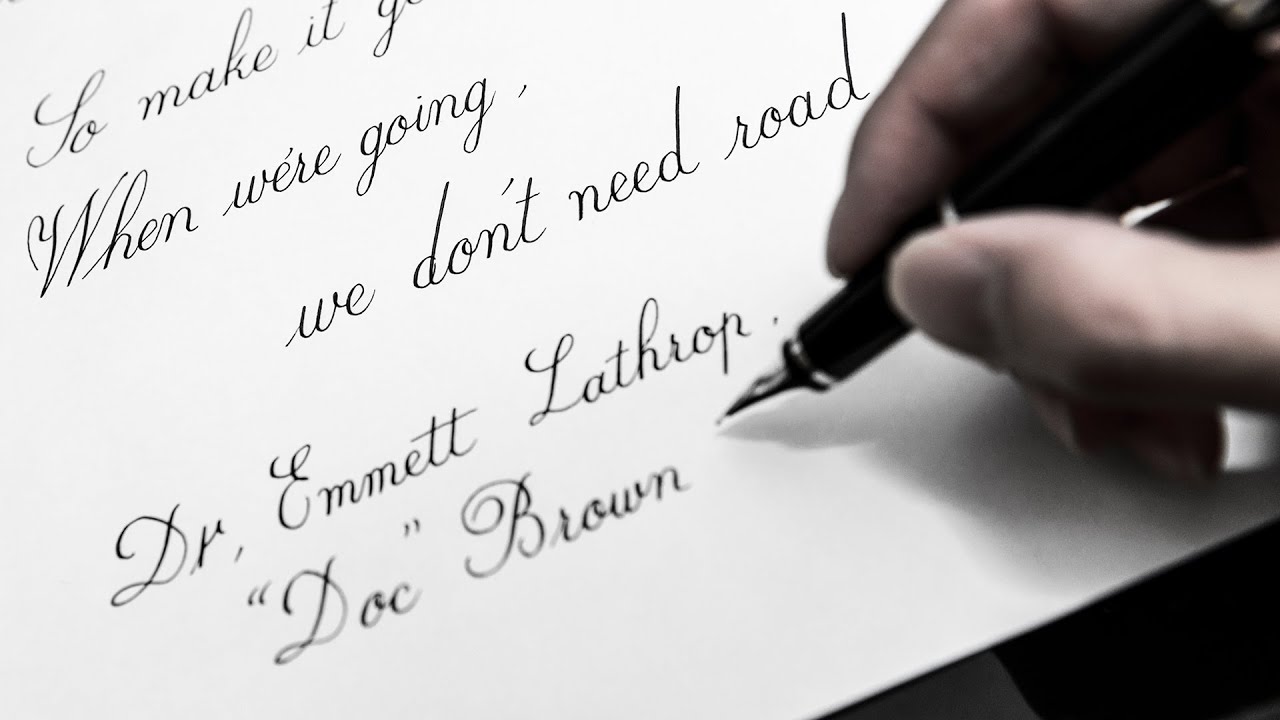 So make it
When we're going,
we don't need road
Dr, Emmett Lathrop.
"Doc" Brown